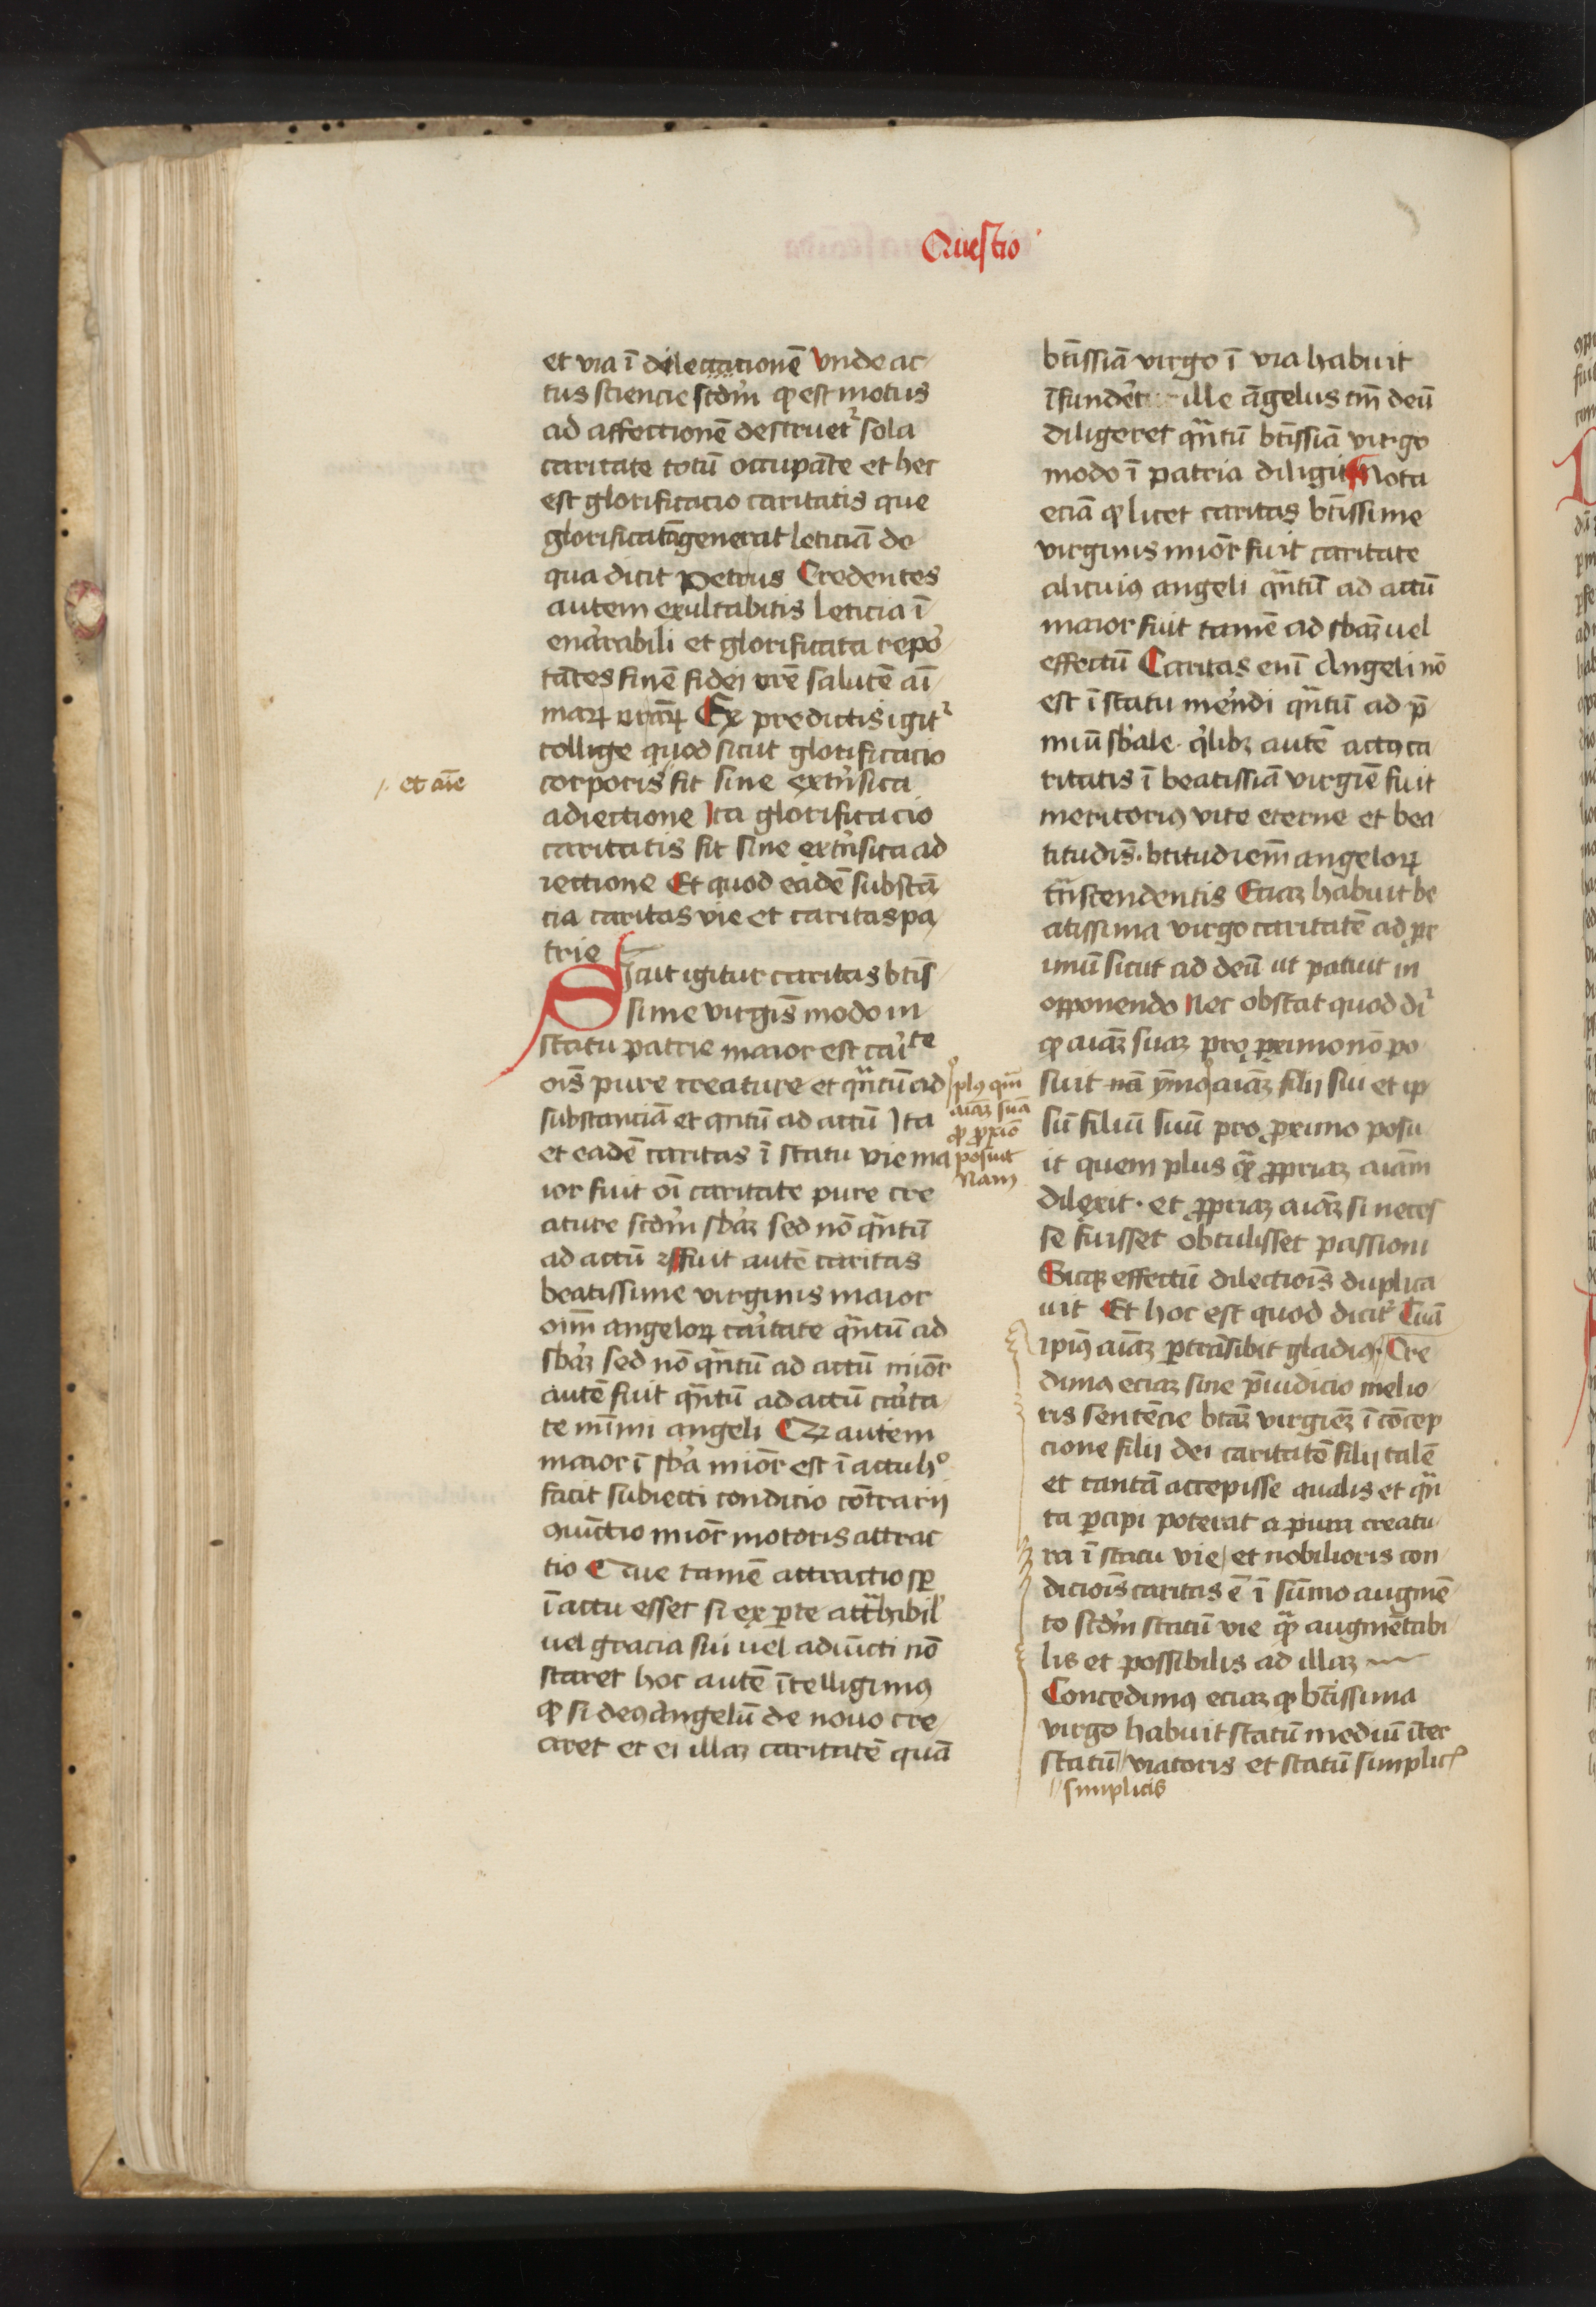 Questio
et via ī dilectationē Vnde ac
tus sciencie scd̄m qͥ est motus
ad affectionē destruet᷑ sola
caritate totū occupāte et hec
est glorificacio caritatis que
glorificatā generat leticiā de
qua dicit Petrus Credentes
autem exultabitis leticia ī
enarrabili et glorificata repo
tātes finē fidei vr̄e salutē aī
maꝝ vr̄aꝝ Ex predictis igit᷑
collige quod sicut glorificacio
corporis fit sine extr̄sica
/. et aīe
adiectione Ita glorificacio
caritatis fit sine extr̄sica ad
iectione Et quod eadē substā
cia caritas vie et caritas pa
trie
Sicut igitur caritas btīs
sime virgīs modo in
statu patrie maior est cari̅te
oīs pure creature et qͣntū ad
substanciā et qntū ad actū Ita
et eadē caritas ī statu vie ma
ior fuit oī caritate pure cre
ature scd̄m sbāꝫ sed nō qͣntū
ad actū fuit autē caritas
beatissime virginis maior
oīm angeloꝝ caritate qͣntū ad
sbāꝫ sed nō qͣntū ad actū miōr
autē fuit qͣntū ad actū carita
te mīmi angeli Qꝫ autem
maior ī sbā miōr est ī actu hͦ
facit subiecti condicio cōtrarij
quīctio miōr motoris attrac
tio Que tamē attractio sꝑ
ī actu esset si ex ꝑte attͣhibil᷑
uel gracia sui uel adiūcti nō
staret hoc autē ītelligimꝰ
ꝙ si deꝰ angelū de nouo cre
aret et ei illaꝫ caritatē quā
btīssiā virgo ī via habuit
īfunderet ille āgelus tm̄ deū
diligeret qͣntū btīssiā virgo
modo ī patria diligit Nota
eciā ꝙ licet caritas btīssime
virginis miōr fuit caritate
alicuiꝰ angeli qͣntū ad actū
maior fuit tamē ad sbāꝫ uel
effectū Caritas enī Angeli nō
est ī statu merēdi qͣntū ad p̄
miū sb̄ale qͥlibꝫ autē actꝰ ca
ritatis ī beatissiā virgīe fuit
meritoriꝰ vite eterne et bea
titudīs btitudiēm angeloꝝ
trāscendentis Eciaꝫ habuit be
atissima virgo caritatē ad ꝓx
imū sicut ad deū ut patuit in
opponendo Nec obstat quod di᷑
ꝙ aīaꝫ suaꝫ pro proximo nō po
suit nā ymo aīaꝫ filij sui et ip
sū filiū suū pro proximo posu
it quem plus qͣꝫ ꝓpriaꝫ aīam
dilexit et ꝓpriaꝫ aīaꝫ si neces
se fuisset obtulisset passioni
plꝰ qͣm
aīaꝫ suā
ꝓ ꝓxīo
posuit
Nam
Sicqꝫ effectū dilectiōis duplica
uit Et hoc est quod dicit᷑ Tuā
ipiꝰ aīaꝫ ꝑtrāsibit gladiꝰ Cre
dimꝰ eciaꝫ sine p̄iudicio melio
ris sentēcie btāꝫ virgīeꝫ ī cōcep
cione filij dei caritatē filij talē
et tantā accepisse qualis et qͣn
ta ꝑcipi poterat a pura creatu
ra ī statu vie et nobilioris con
diciōis caritas ē ī sūmo augmē
to scd̄m statū vie qͣꝫ augmētabi
lis et possibilis ad illaꝫ
Concedimꝰ eciaꝫ ꝙ btīssima
virgo habuit statū mediū īter
statū viatoris et statū simplicͬ
// simplicis